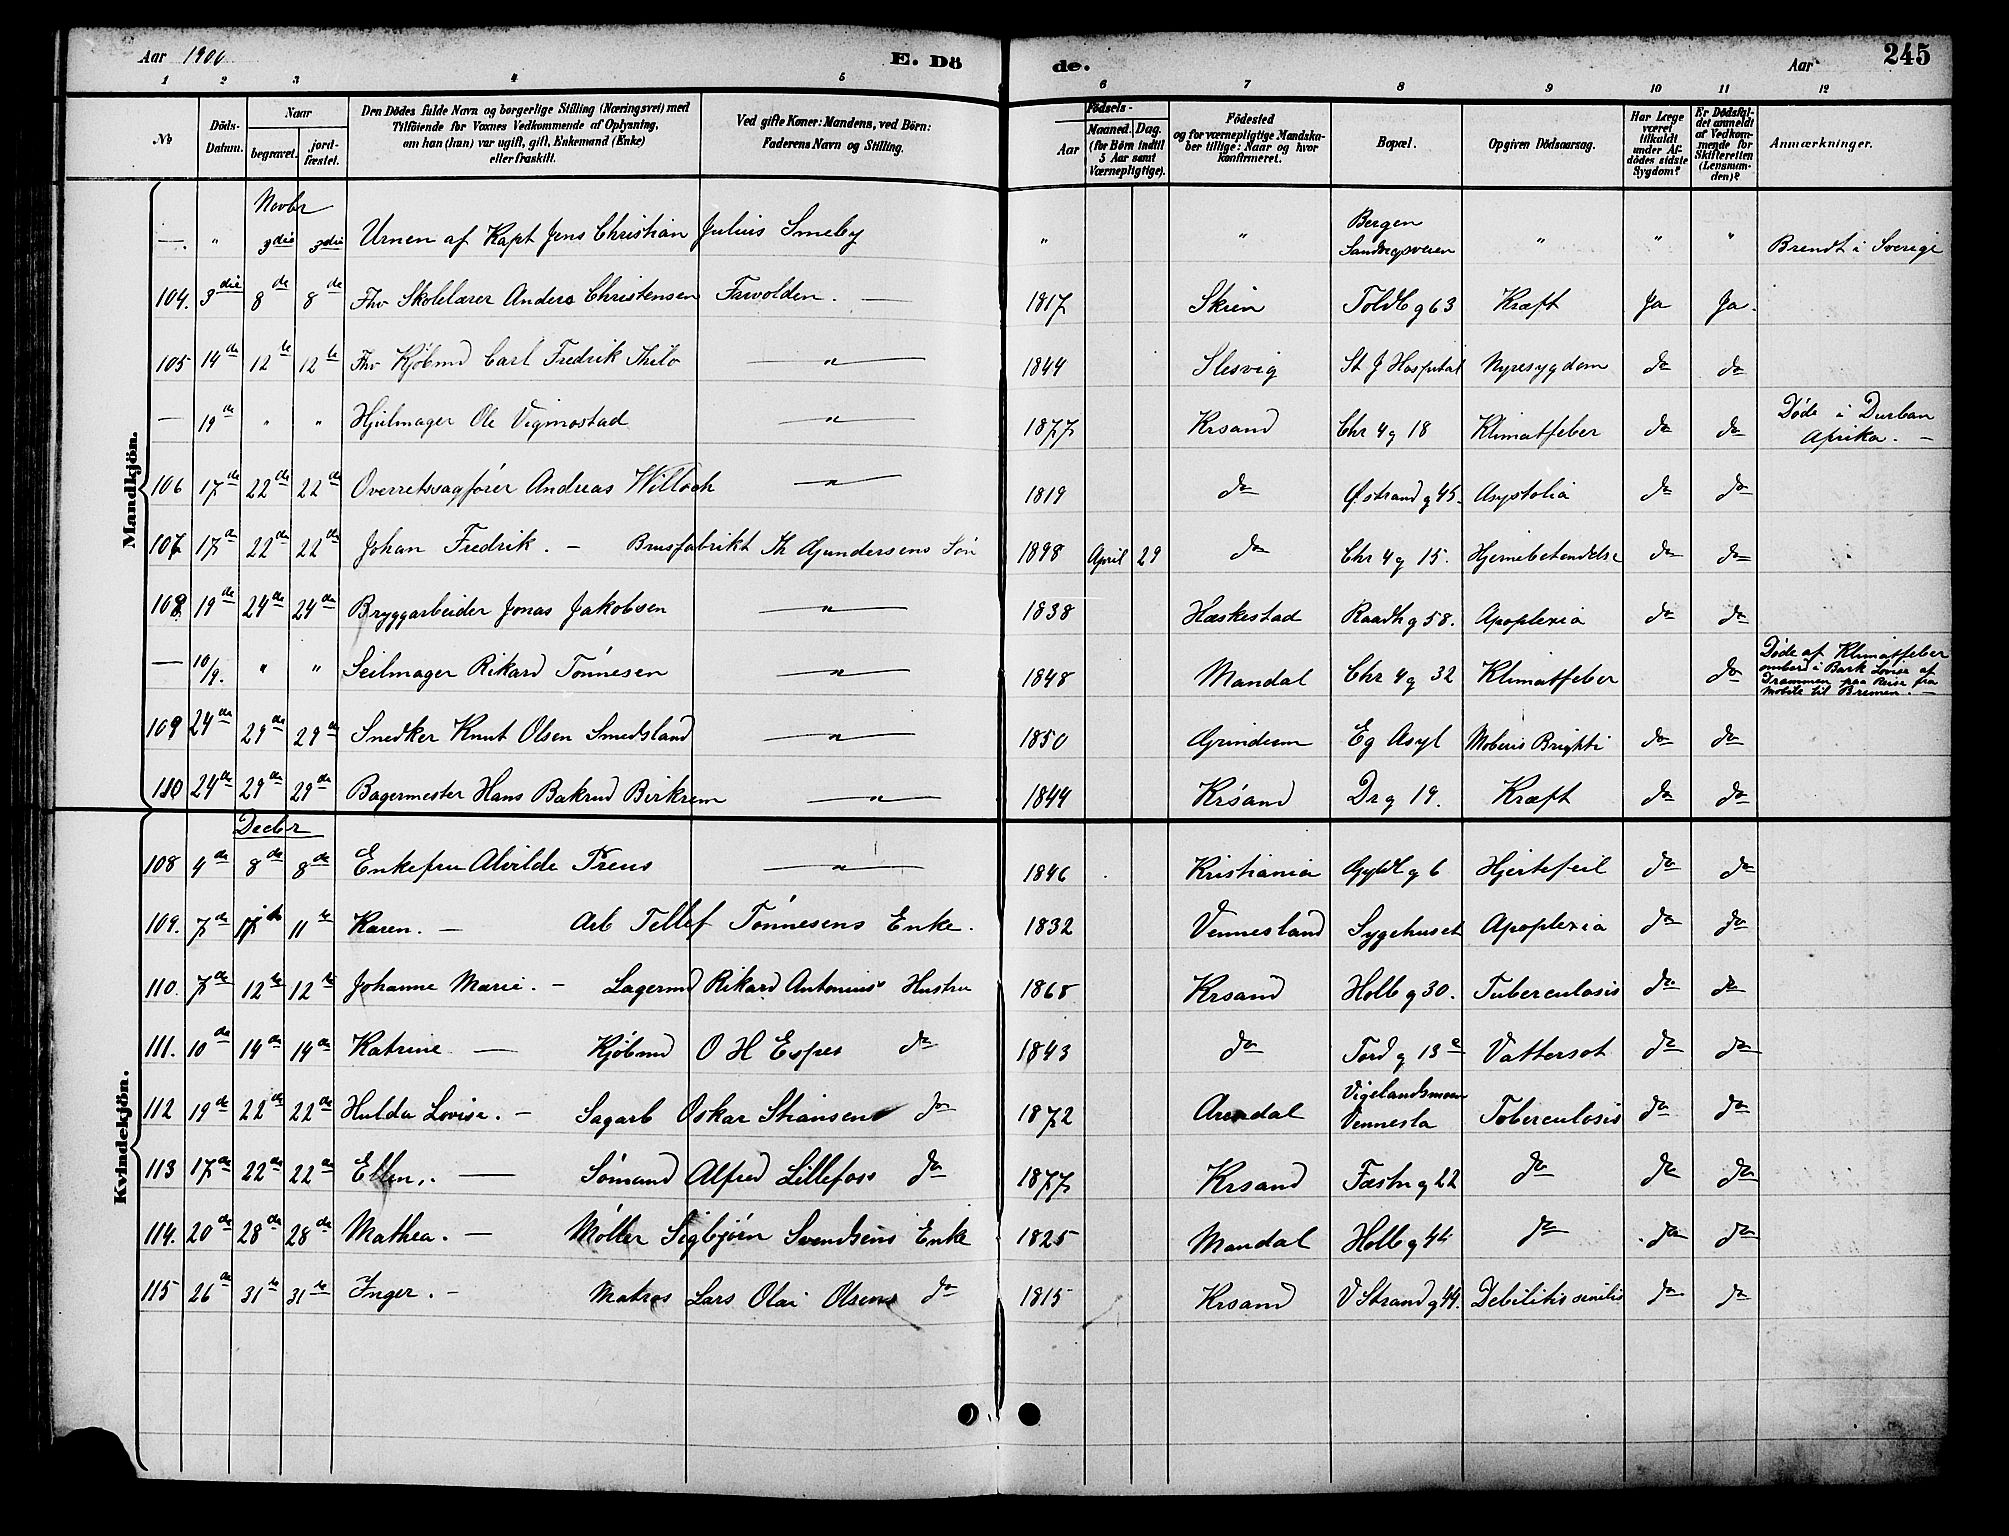 Aar 1900 E. Dö de. Aar 245
1 2 3 4 5 6 7 8 9 10 11 12
No Döds-Datum. Naar begravet. jord-fæstet. Den Dödes fulde Navn og borgerlige Stilling (Næringsvei) med Tilföiende for Voxnes Vedkommende af Oplysning, om han (hun) var ugift, gift, Enkemand (Enke) eller fraskilt. Ved gifte Koner: Mandens, ved Börn: Faderens Navn og Stilling. Födsels- Aar Maaned. Dag. (for Börn indtil 5 Aar samt Værnepligtige). Födested og for værnepligtige Mandskaber tillige: Naar og hvor konfirmeret. Bopæl. Opgiven Dödsaarsag. Har Læge været tilkaldt under Afdödes sidste Sygdom? Er Dödsfaldet anmeldt af Vedkommende for Skifteretten (Lensmanden)? Anmærkninger.
Mandkjön.
Novbr
— " 3die 3die Urnen af Kapt Jens Christian Julius Smeby " " Bergen Sandvigsveien " " " Brendt i Sverige
104. 3die 8de 8de Fhv Skolelærer Anders Christensen Farvolden. — 1817 Skien Toldb g 63 Kræft Ja Ja.
105 14de 12te 12te Fhv Kjöbmd Carl Fredrik Thilo — " — 1844 Slesvig St J Hospital Nyresygdom do do
— 19de " " Hjulmager Ole Vigmostad — " — 1877 Krsand Chr 4 g 18 Klimatfeber do do Døde i Durban Afrika. —
106 17de 22de 22de Overretssagfører Andreas Willoch — " — 1819 do Østrand g 45. Asystolia do do
107 17de 22de 22de Johan Fredrik. — Brusfabrikt Th Gundersens Søn 1898 April 29 do Chr 4 g 15. Hjernebetendelse do do
108. 19de 24de 24de Bryggarbeider Jonas Jakobsen — " — 1838 Hæskestad Raadh g 58. Apoplexia do do
— 10/9. " " Seilmager Rikard Tønnesen — " — 1848 Mandal Chr 4 g 32 Klimatfeber do Døde af Klimatfeber ombord i Bark af Drammen paa Reise fra Mobile til Bremen. —
109 24de 29de 29de Snedker Knut Olsen Smedsland — " — 1850 Grindum Eg Asyl Moberis Brighti do do
110 24de 29de 29de Bagermester Hans Bakrud Birkrem — " — 1844 Krsand Dr g 19. Kræft do do
Kvindekjön.
Decbr
108 4de 8de 8de Enkefru Alvilde Preus — " — 1846 Kristiania Gyldl g 6 Hjertefeil do do
109. 7de 11te Karen. — Arb Tellef Tønnesens Enke. 1832 Vennesland Sygehuset Apoplexia do do
110. 7de 12te 12te Johanne Marie. — Lagermd Rikard Antonius's Hustru 1868 Krsand Holb g 30. Tuberculosis do do
111. 10de 14de 14de Katrine — Kjøbmd O H Espes do 1843 do Tord g 13 Vattersot do do
112 19de 22de 22de Hulda Lovise. — Sagarb Oskar Stiansens do 1872 Arendal Vigelandsmoen Vennesla Toberculosis do do
113 17de 22de 22de Ellen. — Sømand Alfred Lillefoss do 1877 Krsand Fæstn g 22 do do do
114. 20de 28de 28de Mathea. — Møller Sigbjørn Svendsens Enke 1825 Mandal Holb g 44 do do do
115 26de 31te 31te Inger. — Matros Lars Olai Olsens do 1815 Krsand V Strand g 49. Debilitis senilis do do